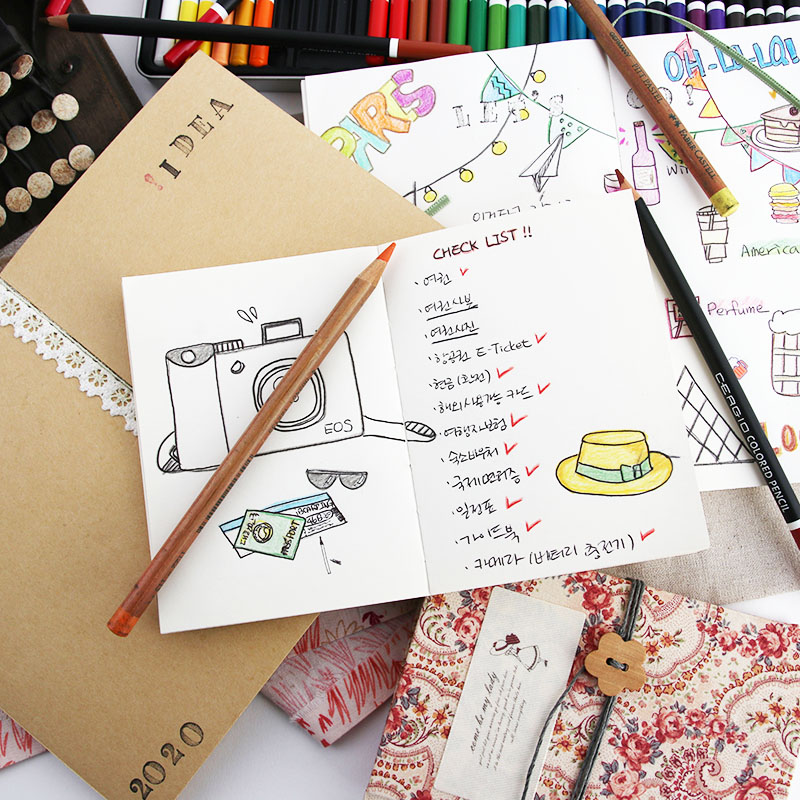 !IDEA
2020
PARIS
LET'S
OH-LA-LA!
FABER-CASTELL
CHECK LIST!!
· 여권 ✓
· 여권사본
· 여권사진
· 항공권 E-Ticket ✓
· 현금(환전) ✓
· 해외사용가능 카드 ✓
· 여행자보험 ✓
· 숙소바우처 ✓
· 국제면허증 ✓
· 일정표 ✓
· 가이드북 ✓
· 카메라 (배터리 충전기) ✓
EOS
PASSPORT
America
Perfume
COLORED PENCIL
come be my lady